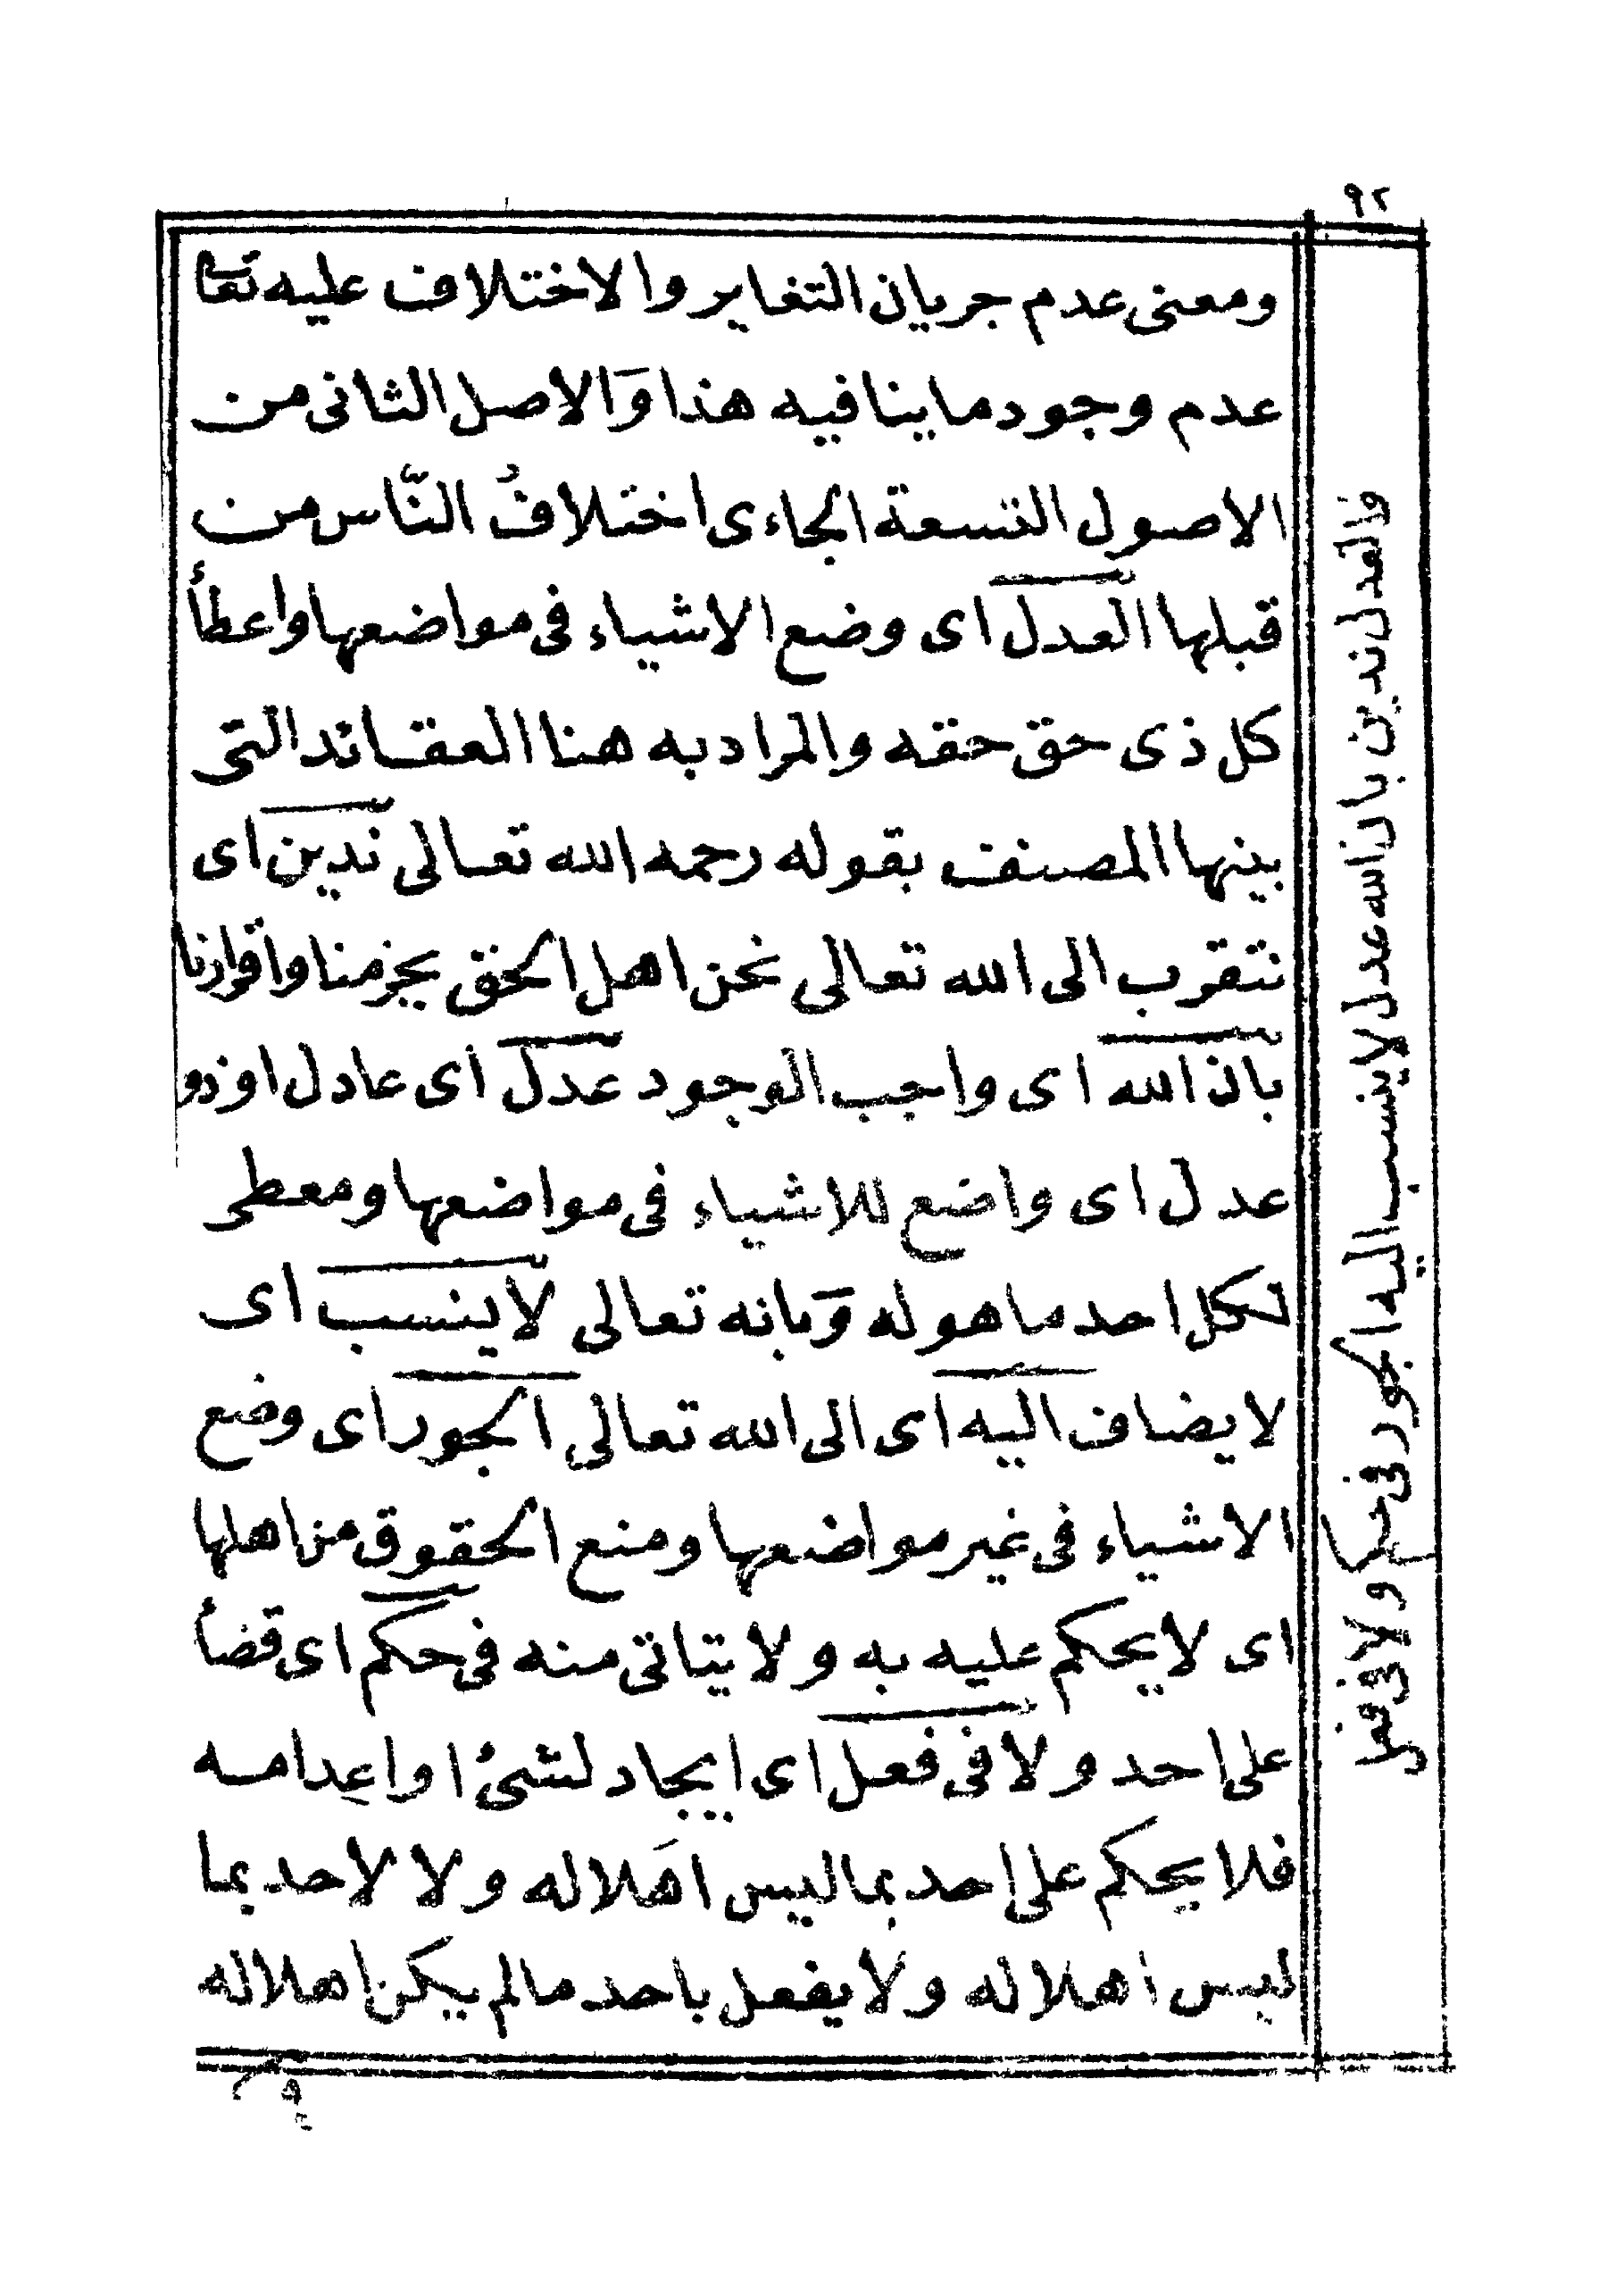 ٩٢
ومعنى عدم جريان التغاير والاختلاف عليه تعا
عدم وجود ما ينافيه هذا وَالاصل الثانى من
الاصول التسعة الجاءى اختلافُ النّاس من
قبلها العدل اى وضع الاشياء فى مواضعها واعطأ
كل ذى حق حقه والمراد به هنا العقائد التى
بينها المصنف بقوله رحمه الله تعالى ندين اى
نتقرب الى الله تعالى نحن اهل الحق بجزمنا واقرارنا
بان الله اى واجب الوجود عدل اى عادل او ذو
عدل اى واضع للاشياء فى مواضعها ومعطى
لكل احد ما هو له وَبانه تعالى لا ينسب اى
لا يضاف اليه اى الى الله تعالى الجور اى وضع
الاشياء فى غير مواضعها ومنع الحقوق من اهلها
اى لا يحكم عليه به ولا يتاتى منه فى حكم اى قضأ
على احد ولا فى فعل اى ايجاد لشئ او اعدامه
فلا يحكم على احد بما ليس اهَلا له ولا لاحد بما
ليس اهلا له ولا يفعل باحد مالم يكن اهلا له
فالعدل ندين بان الله عدل لا ينسب اليه الجور فى حكم ولا فى فعل